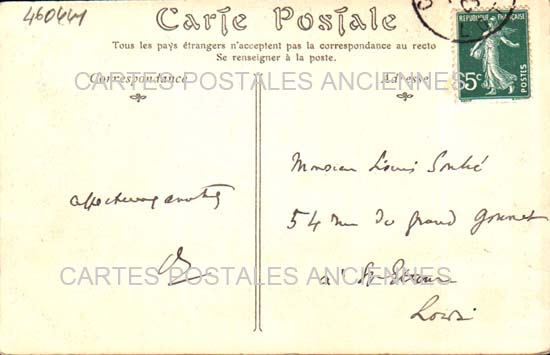 460441
Carte Postale
Tous les pays étrangers n'acceptent pas la correspondance au recto
Se renseigner à la poste.
Correspondance
Adresse
REPUBLIQUE FRANÇAISE
5c
POSTES
CARTES POSTALES ANCIENNES
Monsieur Louis
54 rue du grand gonnet
à St Etienne
Loire
CARTES POSTALES ANCIENNES